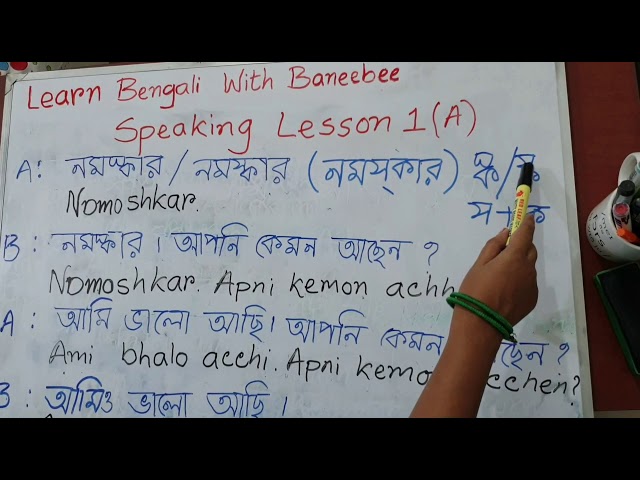 Learn Bengali With Baneebee
Speaking Lesson 1 (A)
A: নমস্কার / নমস্কার (নমস্‌কার) স্ক/স্ক
Nomoshkar.
স+ক
B: নমস্কার। আপনি কেমন আছেন ?
Nomoshkar. Apni kemon
A: আমি ভালো আছি। আপনি কেমন ?
Ami bhalo acchi. Apni
B: আমিও ভালো আছি।